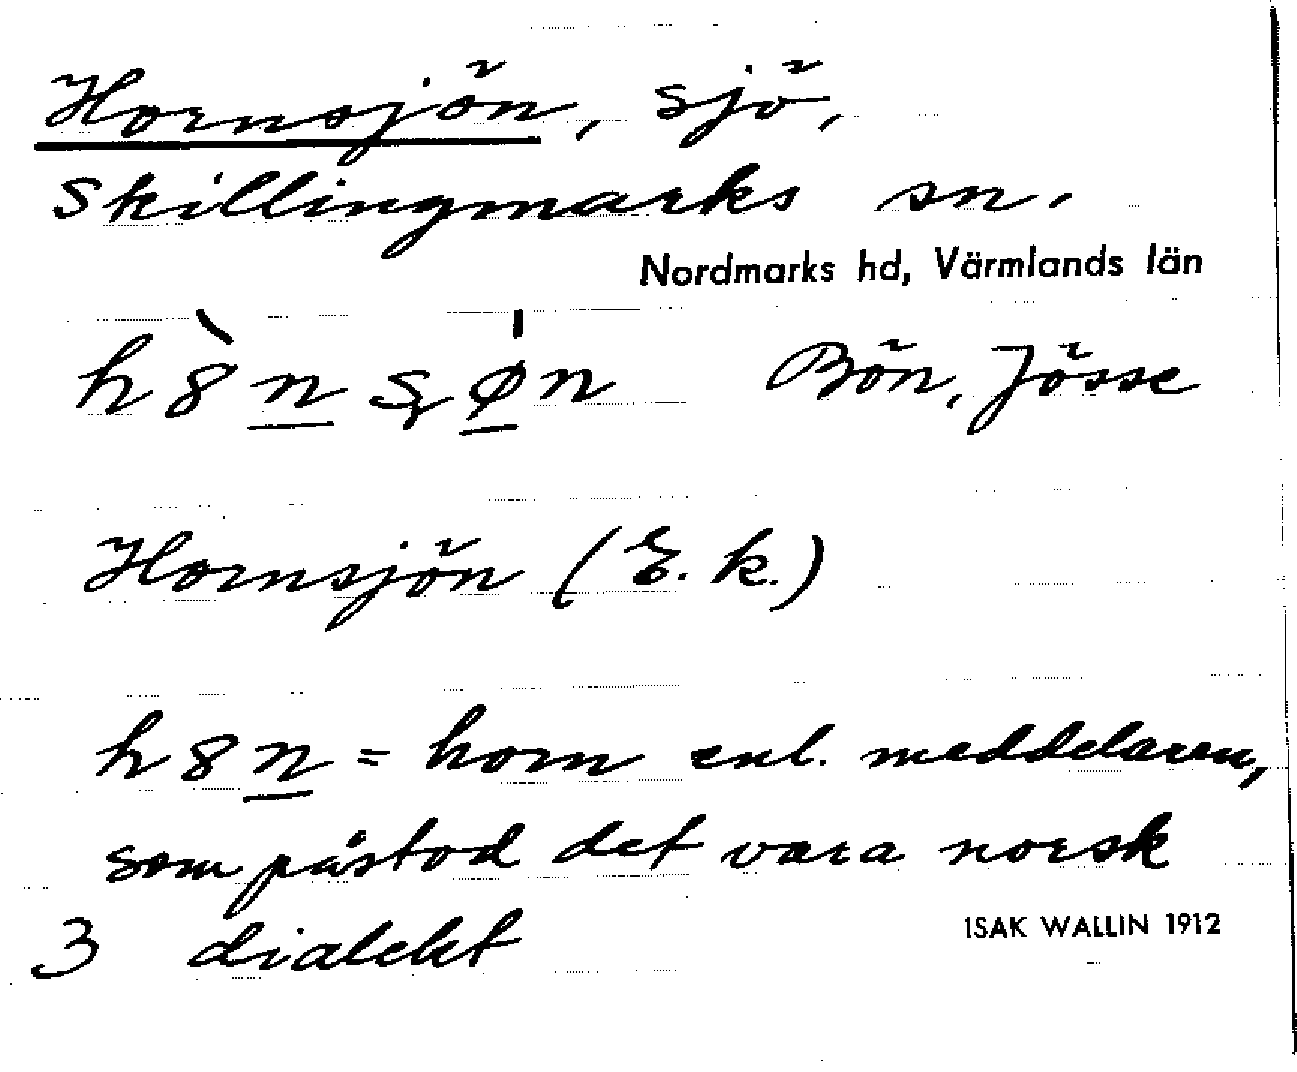 Hornsjön, sjö,
Skillingmarks sn.
Nordmarks hd, Värmlands län
h8̀n̲ ʂø̲̍n Bön, Jösse
Hornsjön (E. k.)
h8n̲ = horn enl. meddelaren,
som påstod det vara norsk
3 dialekt
ISAK WALLIN 1912